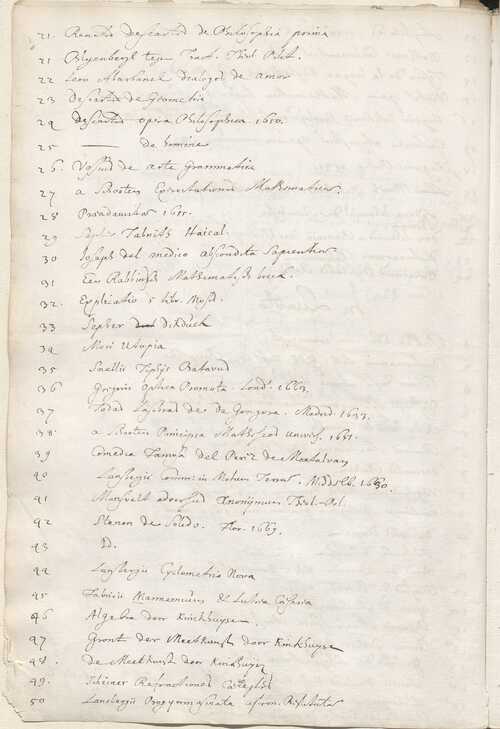 21. Renatus Descartes de Philosophia prima
21 Blyenbergh tegen Tract. Theol. Polit.
22 Leon Abarbanel dialogos de amor
23 Descartes de Geometrie
24 Descartes opera Philosophica 1650.
25 —— de homine
26. Vossius de arte Grammatica
27 a Schooten Exercitationes Mathematicae.
28 Paradamiha 1611.
29 Sepher Tabnith Haical.
30 Joseph del medico abscondita Sapientiae
31 Een Rabbinsch Mathematisch boeck.
32. Explicatio 5 libr. Mosis.
33 Sepher dikduck
34 Mori Utopia
35 Snellii Tiphys Batavus
36 Gregorii Optica Promota. Lond. 1663.
37 Todas las obras de de Gongora. Madrid. 1633.
38 a Schooten Principia Matheseos univers. 1651.
39 Comedia famosa del Perez de Montalvan
40 Lansbergii Comm: in Motum Terrae. Middelb. 1630.
41 Mansvelt adversus Anonymum Theol-Pol.
42 Stenon de Solido. Flor. 1669.
43 Id.
44 Lansbergii Cyclometria Nova
45 Fabricii &
46 Algebra door Kinckhuysen.
47 Gront der Meetkunst door Kinkhuysen
48. de Meetkunst door Kinkhuysen
49. Scheiner Refractiones Coelestes
50 Lansbergii Progymnasmata astron. Restitutae